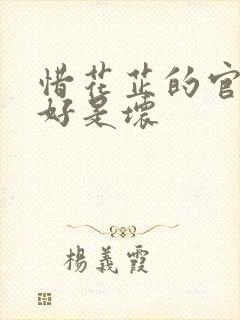 惜花芷的官
好是壞
楊義霞